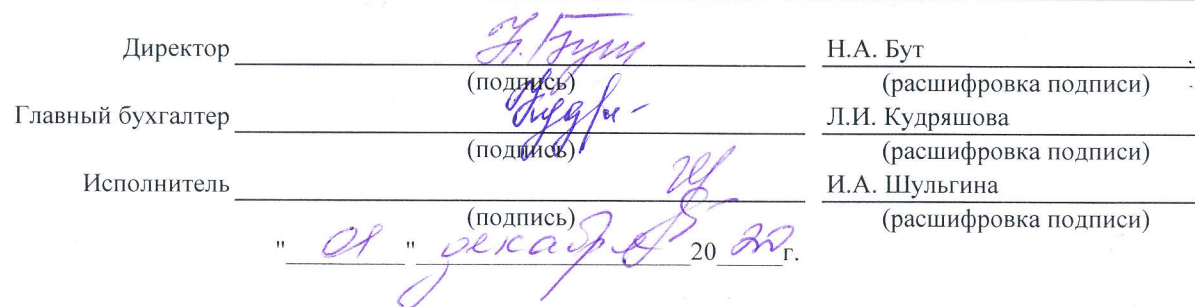 Директор Н. Бут Н.А. Бут
(подпись) (расшифровка подписи)
Главный бухгалтер Кудр Л.И. Кудряшова
(подпись) (расшифровка подписи)
Исполнитель И.А. Шульгина
(подпись) (расшифровка подписи)
" 01 " декабря 20 20 г.